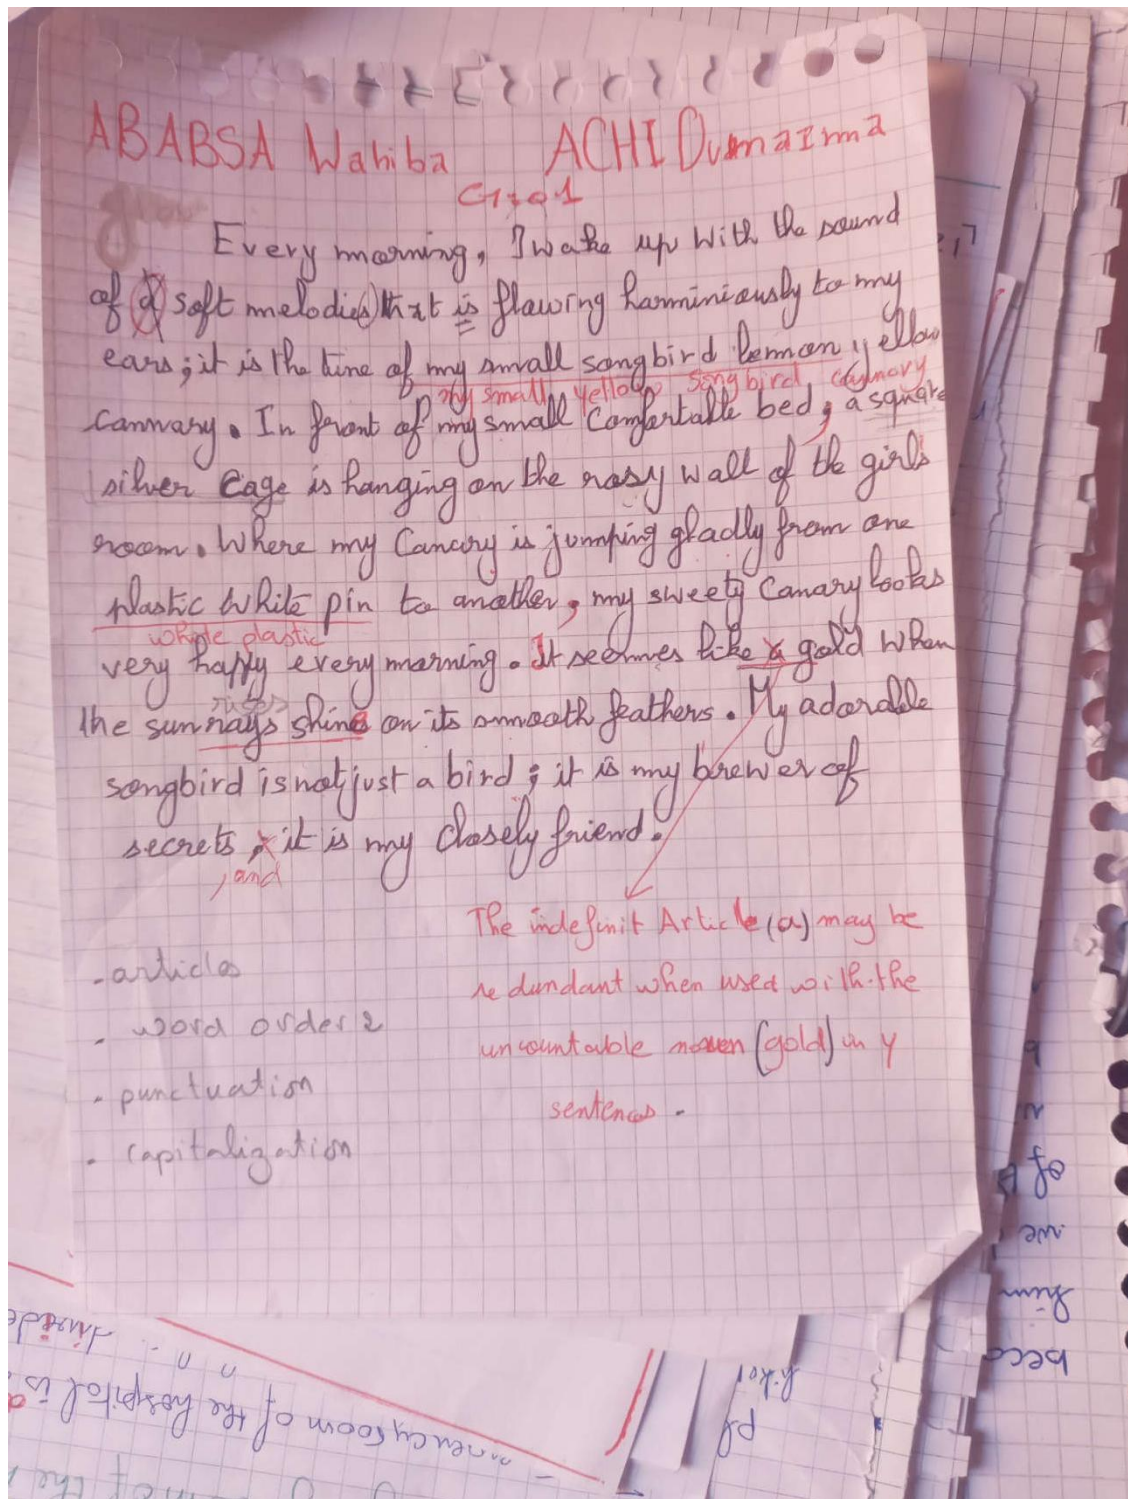 ABABSA Wahiba ACHI Oumaima
G: 01
Every morning, I wake up with the sound
of a soft melodies that is flowing harminiously to my
ears; it is the tune of my small songbird lemon yellow
my small yellow songbird canary
cannary. In front of my small comfortable bed, a square
silver cage is hanging on the rosy wall of the girls
room. Where my Canary is jumping gladly from one
plastic white pin to another, my sweety Canary looks
white plastic
very happy every morning. It seemes like a gold when
the sun rays shines on its smooth feathers. My adorable
songbird is not just a bird; it is my brewer of
secrets, it is my closely friend.
, and
The indefinit Article (a) may be
redundant when used with the
uncountable noun (gold) in y
sentences.
- articles
- word order 2
- punctuation
- capitalization
divide
mency room of the hospital is
of the
pl
of
we
him
beca